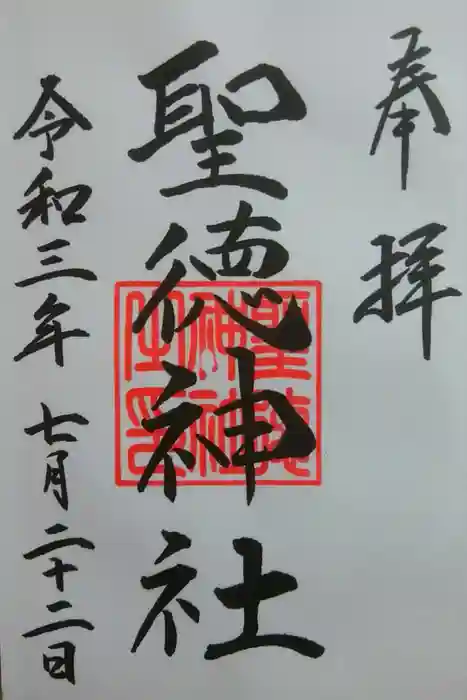 奉拝
聖徳神社
令和三年七月二十二日
聖徳神社之印